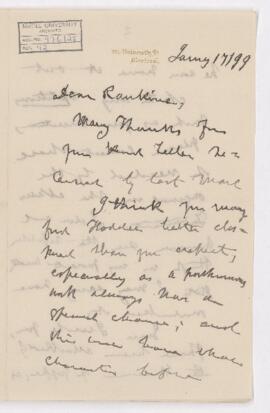 McGILL UNIVERSITY
ARCHIVES
ACC. NO.
REF. 42
University St
Montreal.
Jany 17/99
Dear Rankine,
Many thanks for
your kind letter re-
ceived by last mail
I think you may
find Hodder better dis-
posed than you expect,
especially as a posthumous
work always has an
special chance; and
this will have that
character before